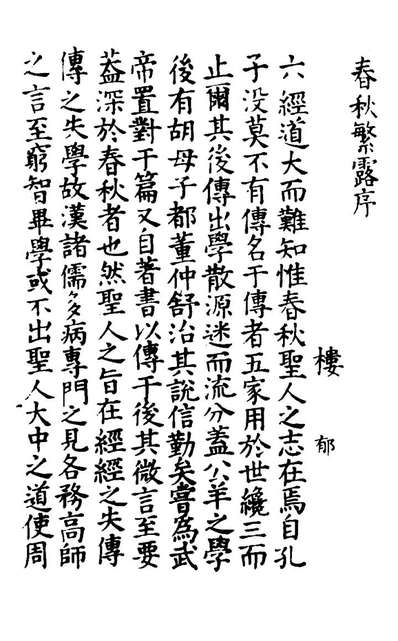 春秋繁露序
樓郁
六經道大而難知惟春秋聖人之志在焉自孔
子没莫不有傳名于傳者五家用於世纔三而
止爾其後傳出學散源迷而流分蓋公羊之學
後有胡母子都董仲舒治其說信勤矣嘗爲武
帝置對于篇又自著書以傳于後其微言至要
葢深於春秋者也然聖人之旨在經經之失傳
傳之失學故漢諸儒多病專門之見各務高師
之言至窮智畢學或不出聖人大中之道使周